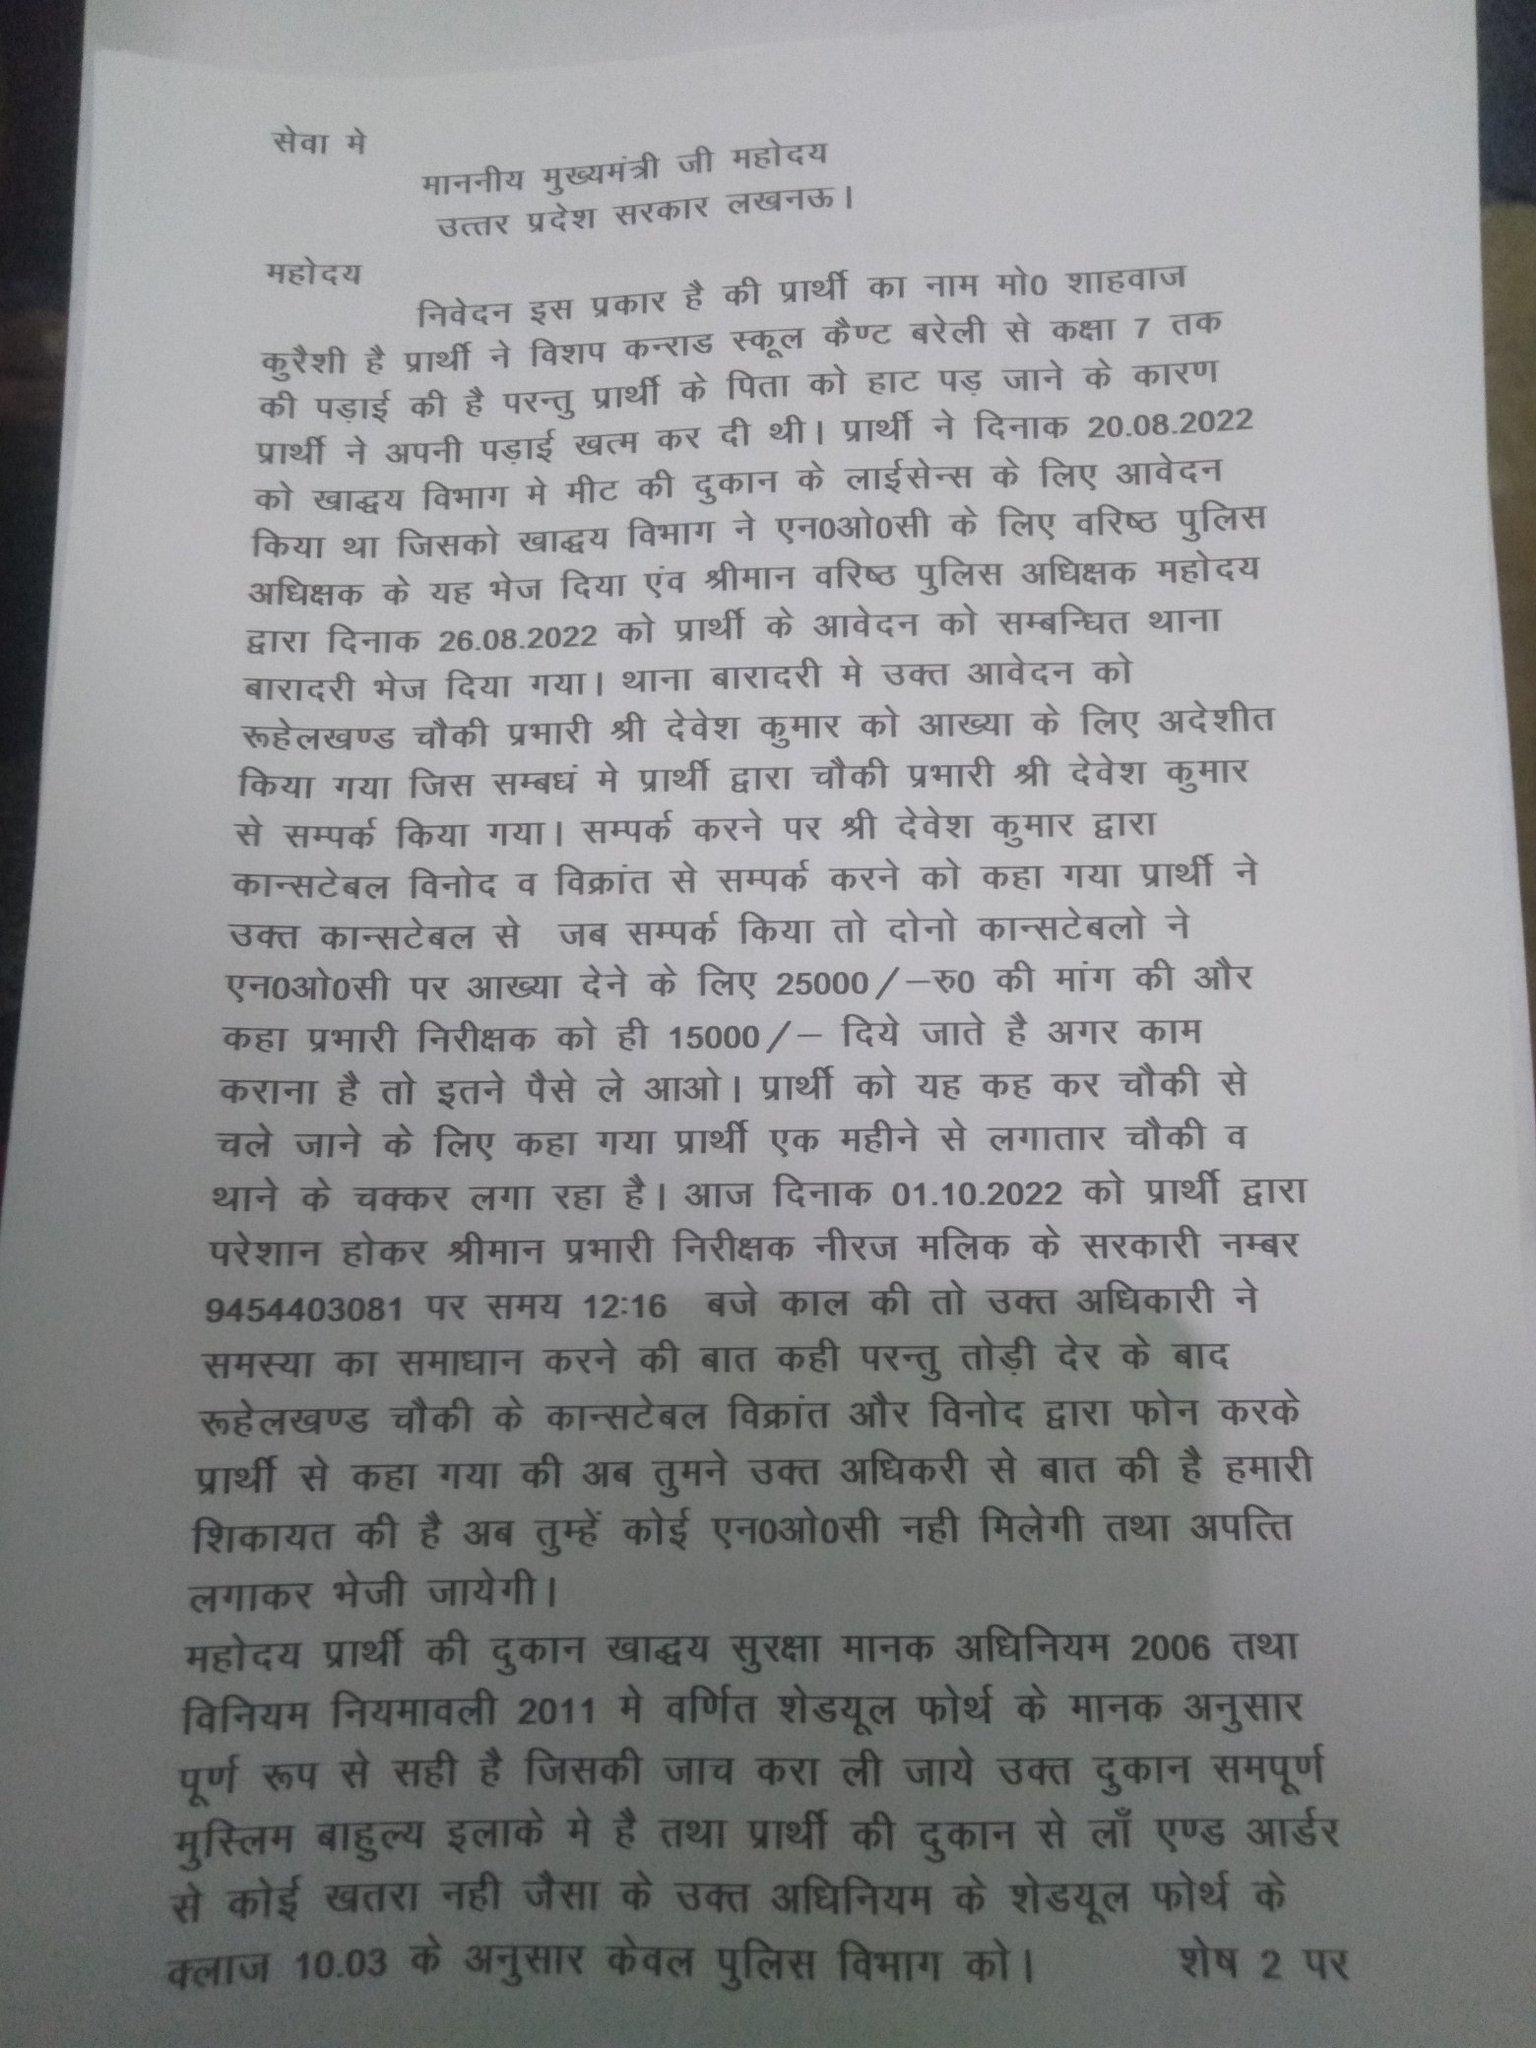 सेवा मे
माननीय मुख्यमंत्री जी महोदय
उत्तर प्रदेश सरकार लखनऊ।
महोदय
निवेदन इस प्रकार है की प्रार्थी का नाम मो0 शाहवाज
कुरैशी है प्रार्थी ने विशप कन्राड स्कूल कैण्ट बरेली से कक्षा 7 तक
की पड़ाई की है परन्तु प्रार्थी के पिता को हाट पड़ जाने के कारण
प्रार्थी ने अपनी पड़ाई खत्म कर दी थी। प्रार्थी ने दिनाक 20.08.2022
को खाद्धय विभाग मे मीट की दुकान के लाईसेन्स के लिए आवेदन
किया था जिसको खाद्धय विभाग ने एन0ओ0सी के लिए वरिष्ठ पुलिस
अधिक्षक के यह भेज दिया एंव श्रीमान वरिष्ठ पुलिस अधिक्षक महोदय
द्वारा दिनाक 26.08.2022 को प्रार्थी के आवेदन को सम्बन्धित थाना
बारादरी भेज दिया गया। थाना बारादरी मे उक्त आवेदन को
रूहेलखण्ड चौकी प्रभारी श्री देवेश कुमार को आख्या के लिए अदेशीत
किया गया जिस सम्बधं मे प्रार्थी द्वारा चौकी प्रभारी श्री देवेश कुमार
से सम्पर्क किया गया। सम्पर्क करने पर श्री देवेश कुमार द्वारा
कान्सटेबल विनोद व विक्रांत से सम्पर्क करने को कहा गया प्रार्थी ने
उक्त कान्सटेबल से जब सम्पर्क किया तो दोनो कान्सटेबलो ने
एन0ओ0सी पर आख्या देने के लिए 25000/–रु0 की मांग की और
कहा प्रभारी निरीक्षक को ही 15000/– दिये जाते है अगर काम
कराना है तो इतने पैसे ले आओ। प्रार्थी को यह कह कर चौकी से
चले जाने के लिए कहा गया प्रार्थी एक महीने से लगातार चौकी व
थाने के चक्कर लगा रहा है। आज दिनाक 01.10.2022 को प्रार्थी द्वारा
परेशान होकर श्रीमान प्रभारी निरीक्षक नीरज मलिक के सरकारी नम्बर
9454403081 पर समय 12:16 बजे काल की तो उक्त अधिकारी ने
समस्या का समाधान करने की बात कही परन्तु तोड़ी देर के बाद
रूहेलखण्ड चौकी के कान्सटेबल विक्रांत और विनोद द्वारा फोन करके
प्रार्थी से कहा गया की अब तुमने उक्त अधिकरी से बात की है हमारी
शिकायत की है अब तुम्हें कोई एन0ओ0सी नही मिलेगी तथा अपत्ति
लगाकर भेजी जायेगी।
महोदय प्रार्थी की दुकान खाद्धय सुरक्षा मानक अधिनियम 2006 तथा
विनियम नियमावली 2011 मे वर्णित शेडयूल फोर्थ के मानक अनुसार
पूर्ण रूप से सही है जिसकी जाच करा ली जाये उक्त दुकान समपूर्ण
मुस्लिम बाहुल्य इलाके मे है तथा प्रार्थी की दुकान से लाँ एण्ड आर्डर
से कोई खतरा नही जैसा के उक्त अधिनियम के शेडयूल फोर्थ के
क्लाज 10.03 के अनुसार केवल पुलिस विभाग को। शेष 2 पर